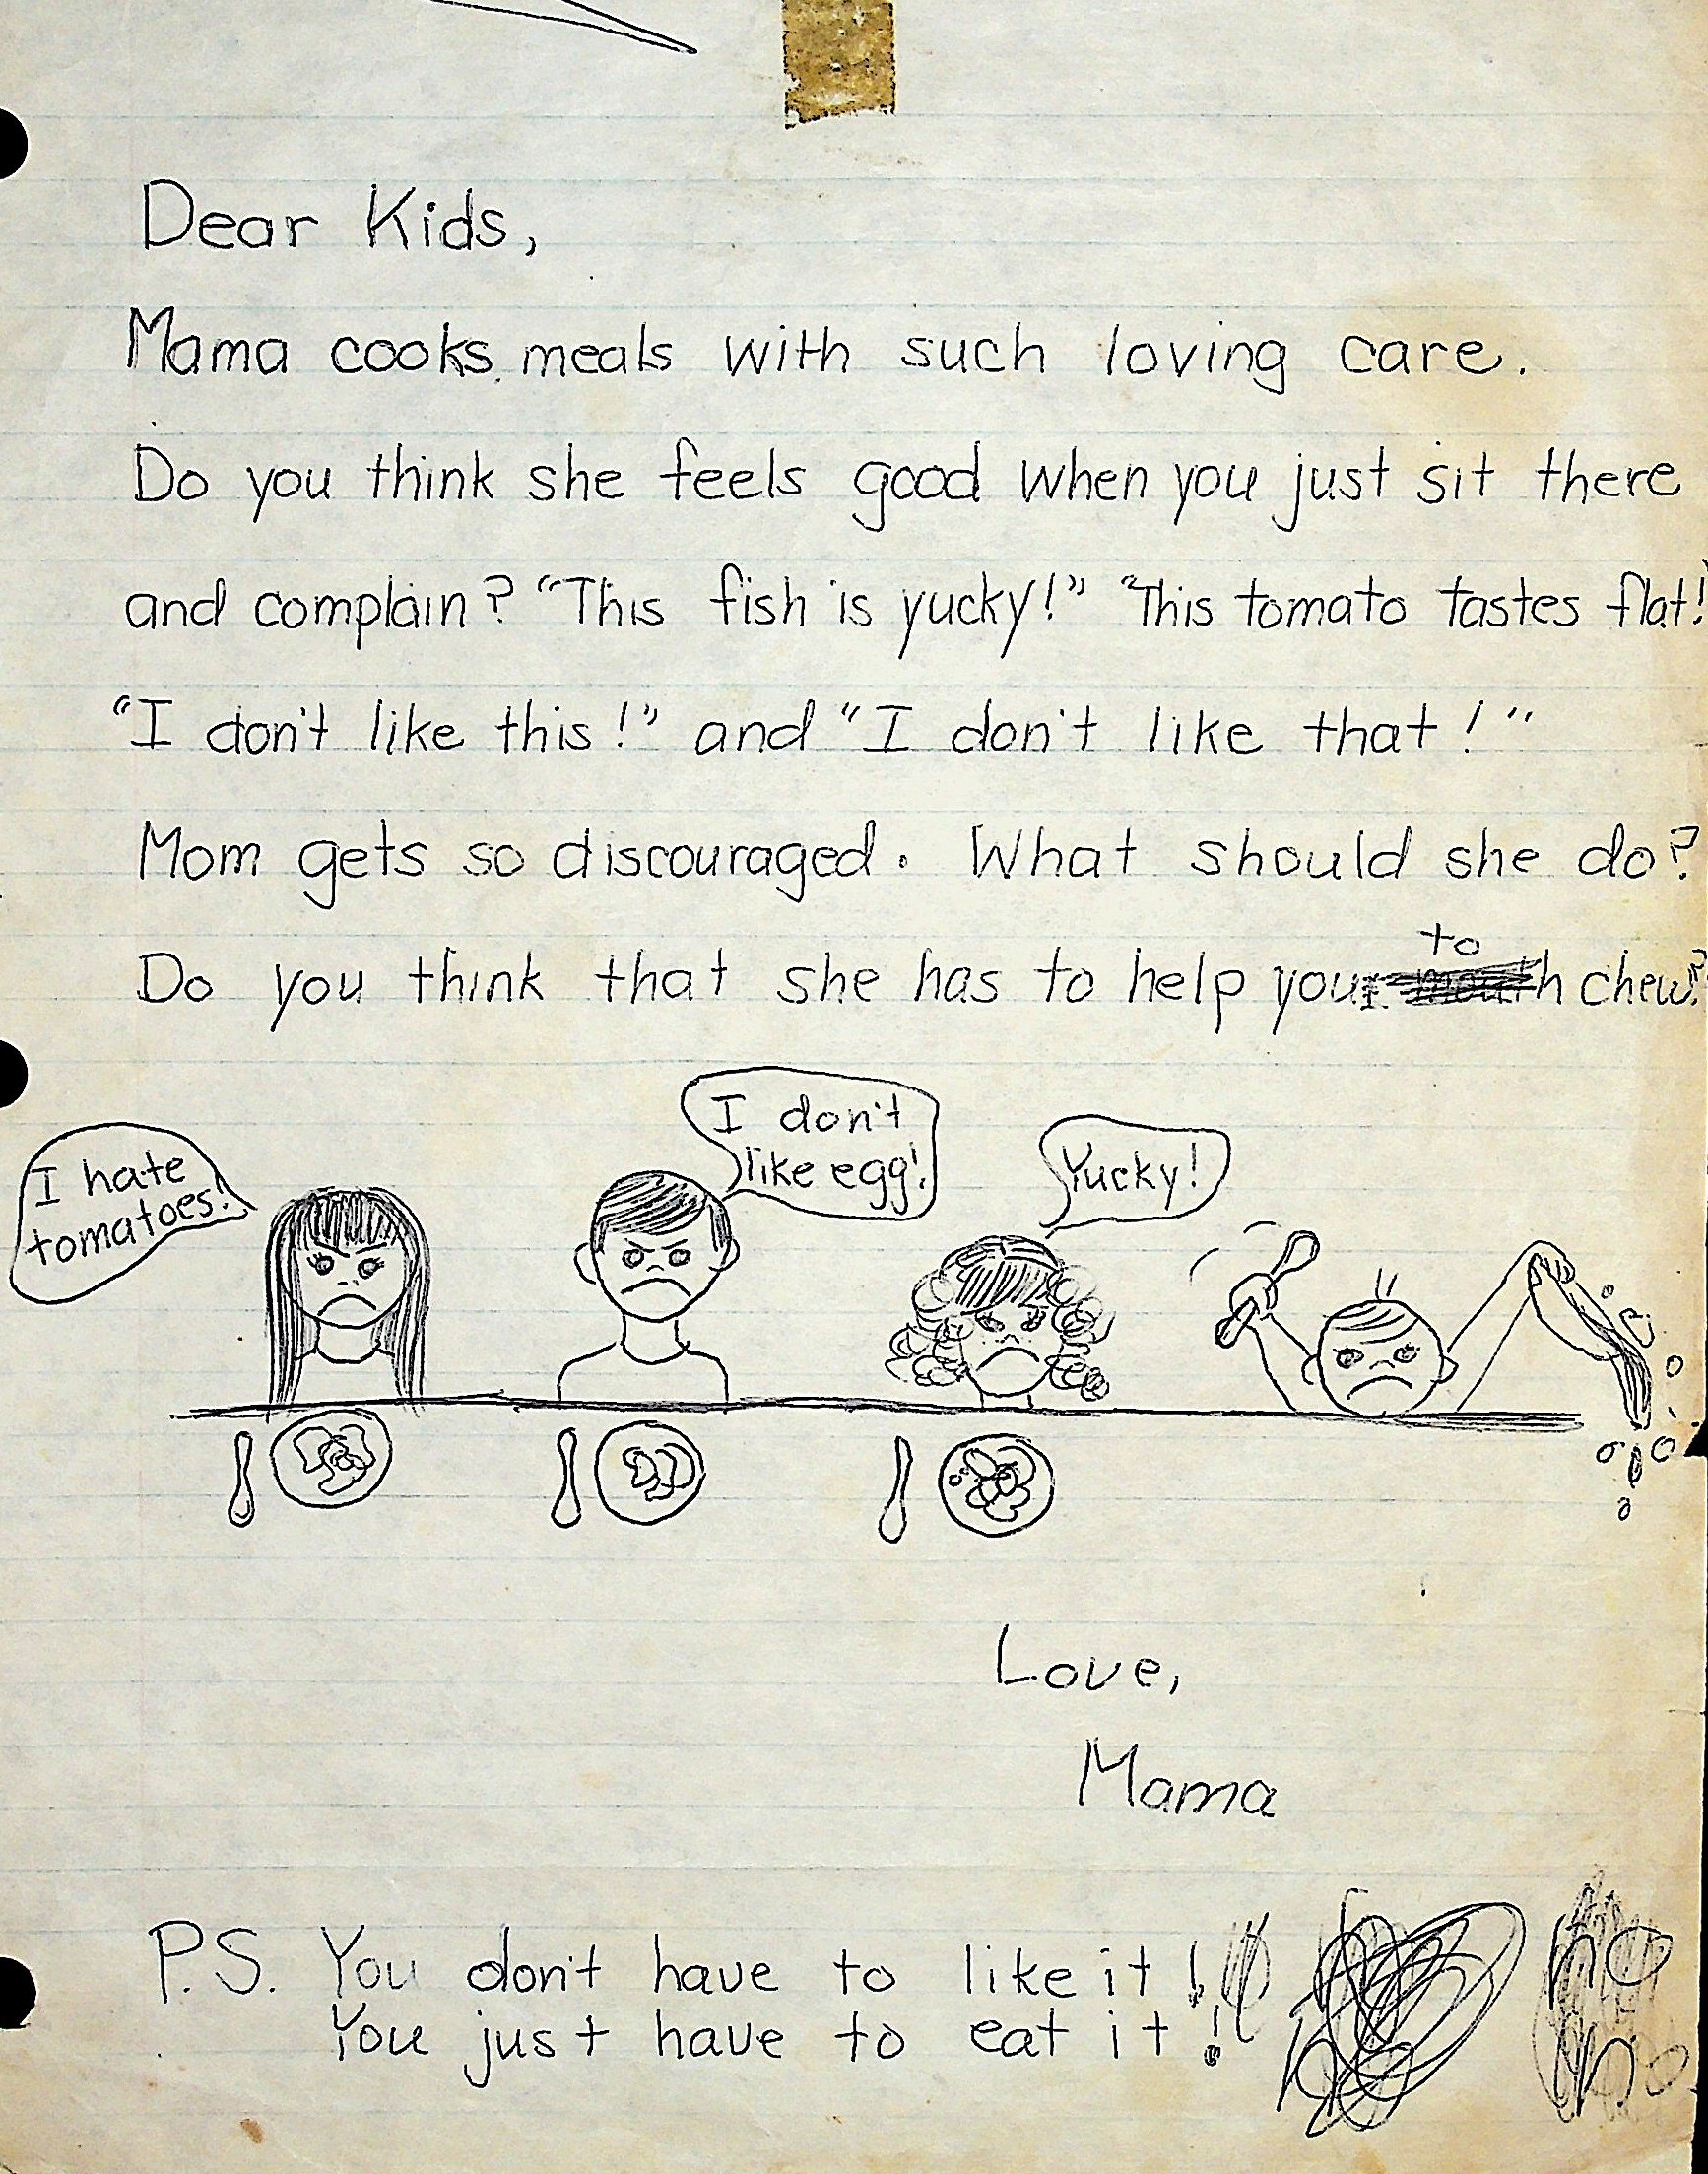 Dear Kids,
Mama cooks meals with such loving care.
Do you think she feels good when you just sit there
and complain? "This fish is yucky!" "This tomato tastes flat!
"I don't like this!" and "I don't like that!"
Mom gets so discouraged. What should she do?
to
Do you think that she has to help your mouth chew?
I hate
tomatoes!
I don't
like egg!
Yucky!
Love,
Mama
P.S. You don't have to like it!
You just have to eat it!
no
no